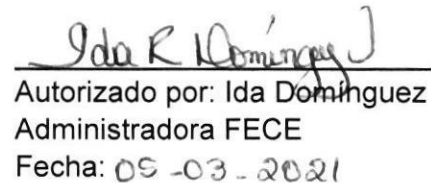 Ida R Dominguez J
Autorizado por: Ida Domínguez
Administradora FECE
Fecha: 05-03-2021